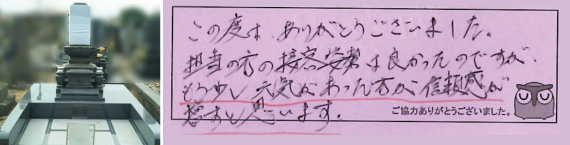 この度は、ありがとうございました。
担当の方の接客姿勢は良かったのですが、
もう少し元気があった方が信頼感が
増すと思います。
ご協力ありがとうございました。